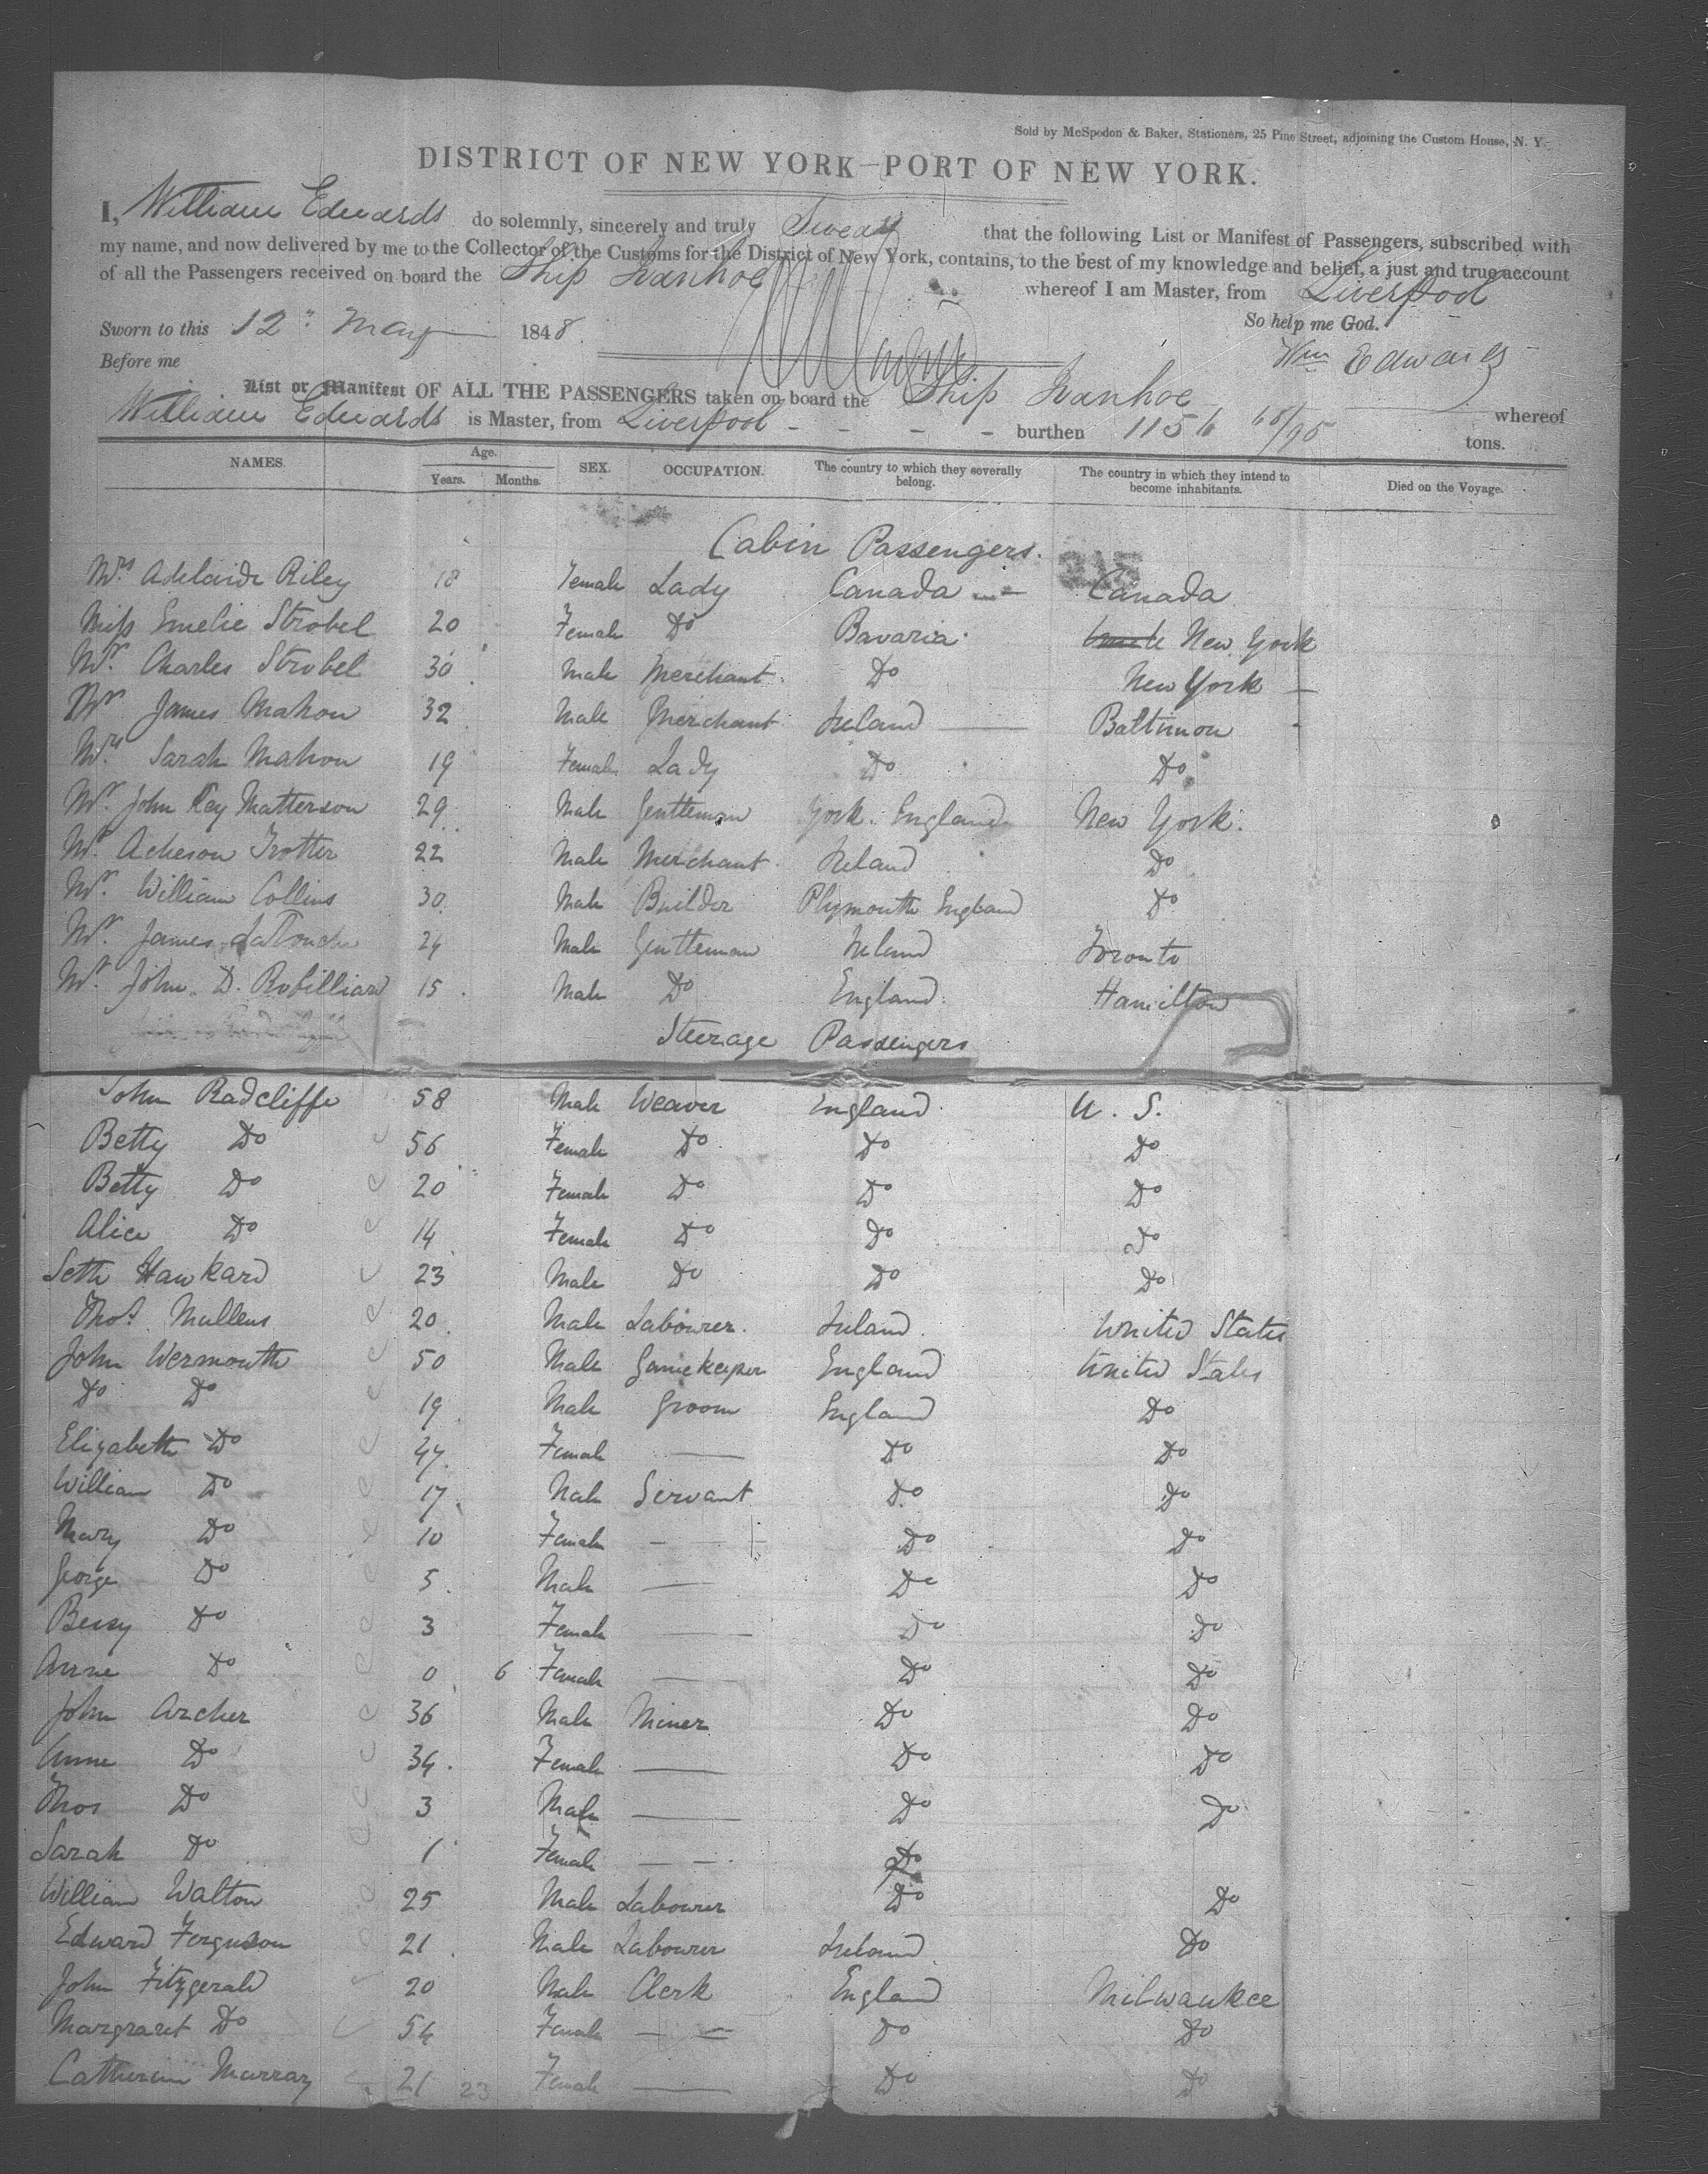 Sold by McSpedon & Baker, Stationers, 25 Pine Street, adjoining the Custom House, N. Y.
DISTRICT OF NEW YORK—PORT OF NEW YORK.
I, William Edwards do solemnly, sincerely and truly Swear that the following List or Manifest of Passengers, subscribed with
my name, and now delivered by me to the Collector of the Customs for the District of New York, contains, to the best of my knowledge and belief, a just and true account
of all the Passengers received on board the Ship Ivanhoe whereof I am Master, from Liverpool
So help me God.
Sworn to this 12th May 1848
Wm Edwards
Before me
List or Manifest OF ALL THE PASSENGERS taken on board the Ship Ivanhoe whereof
William Edwards is Master, from Liverpool - - - - burthen 1156 68/95 tons.
NAMES. Age. SEX. OCCUPATION. The country to which they severally belong. The country in which they intend to become inhabitants. Died on the Voyage.
Years. Months.
Cabin Passengers.
Mrs Adelaide Riley 18 Female Lady Canada Canada
Miss Emelie Strobel 20 Female Do Bavaria New York
Mr. Charles Strobel 30 Male Merchant Do New York
Mr James Mahon 32 Male Merchant Ireland Baltimore
Mrs Sarah Mahon 19 Female Lady Do Do
Mr. John Key Matterson 29 Male Gentleman York. England New York.
Mr. Acheson Trotter 22 Male Merchant Ireland Do
Mr. William Collins 30 Male Builder Plymouth England Do
Mr. James LaTouche 24 Male Gentleman Ireland Toronto
Mr. John D. Robilliard 15 Male Do England Hamilton
Steerage Passengers
John Radcliffe 58 Male Weaver England U. S.
Betty Do 56 Female Do Do Do
Betty Do 20 Female Do Do Do
Alice Do 14 Female Do Do Do
Seth Hawkard 23 Male Do Do Do
Thos. Mullens 20 Male Labourer Ireland United States
John Wermouth 50 Male Gamekeeper England United States
Do Do 19 Male Groom England Do
Elizabeth Do 47 Female — Do Do
William Do 17 Male Servant Do Do
Mary Do 10 Female — Do Do
George Do 5 Male — Do Do
Bessy Do 3 Female — Do Do
Anne Do 0 6 Female — Do Do
John Archer 36 Male Miner Do Do
Anne Do 34 Female — Do Do
Thos Do 3 Male — Do Do
Sarah Do 1 Female — — Do
William Walton 25 Male Labourer Do Do
Edward Ferguson 21 Male Labourer Ireland Do
John Fitzgerald 20 Male Clerk England Milwaukee
Margraret Do 54 Female — — Do Do
Catherine Murray 21 23 Female — Do Do